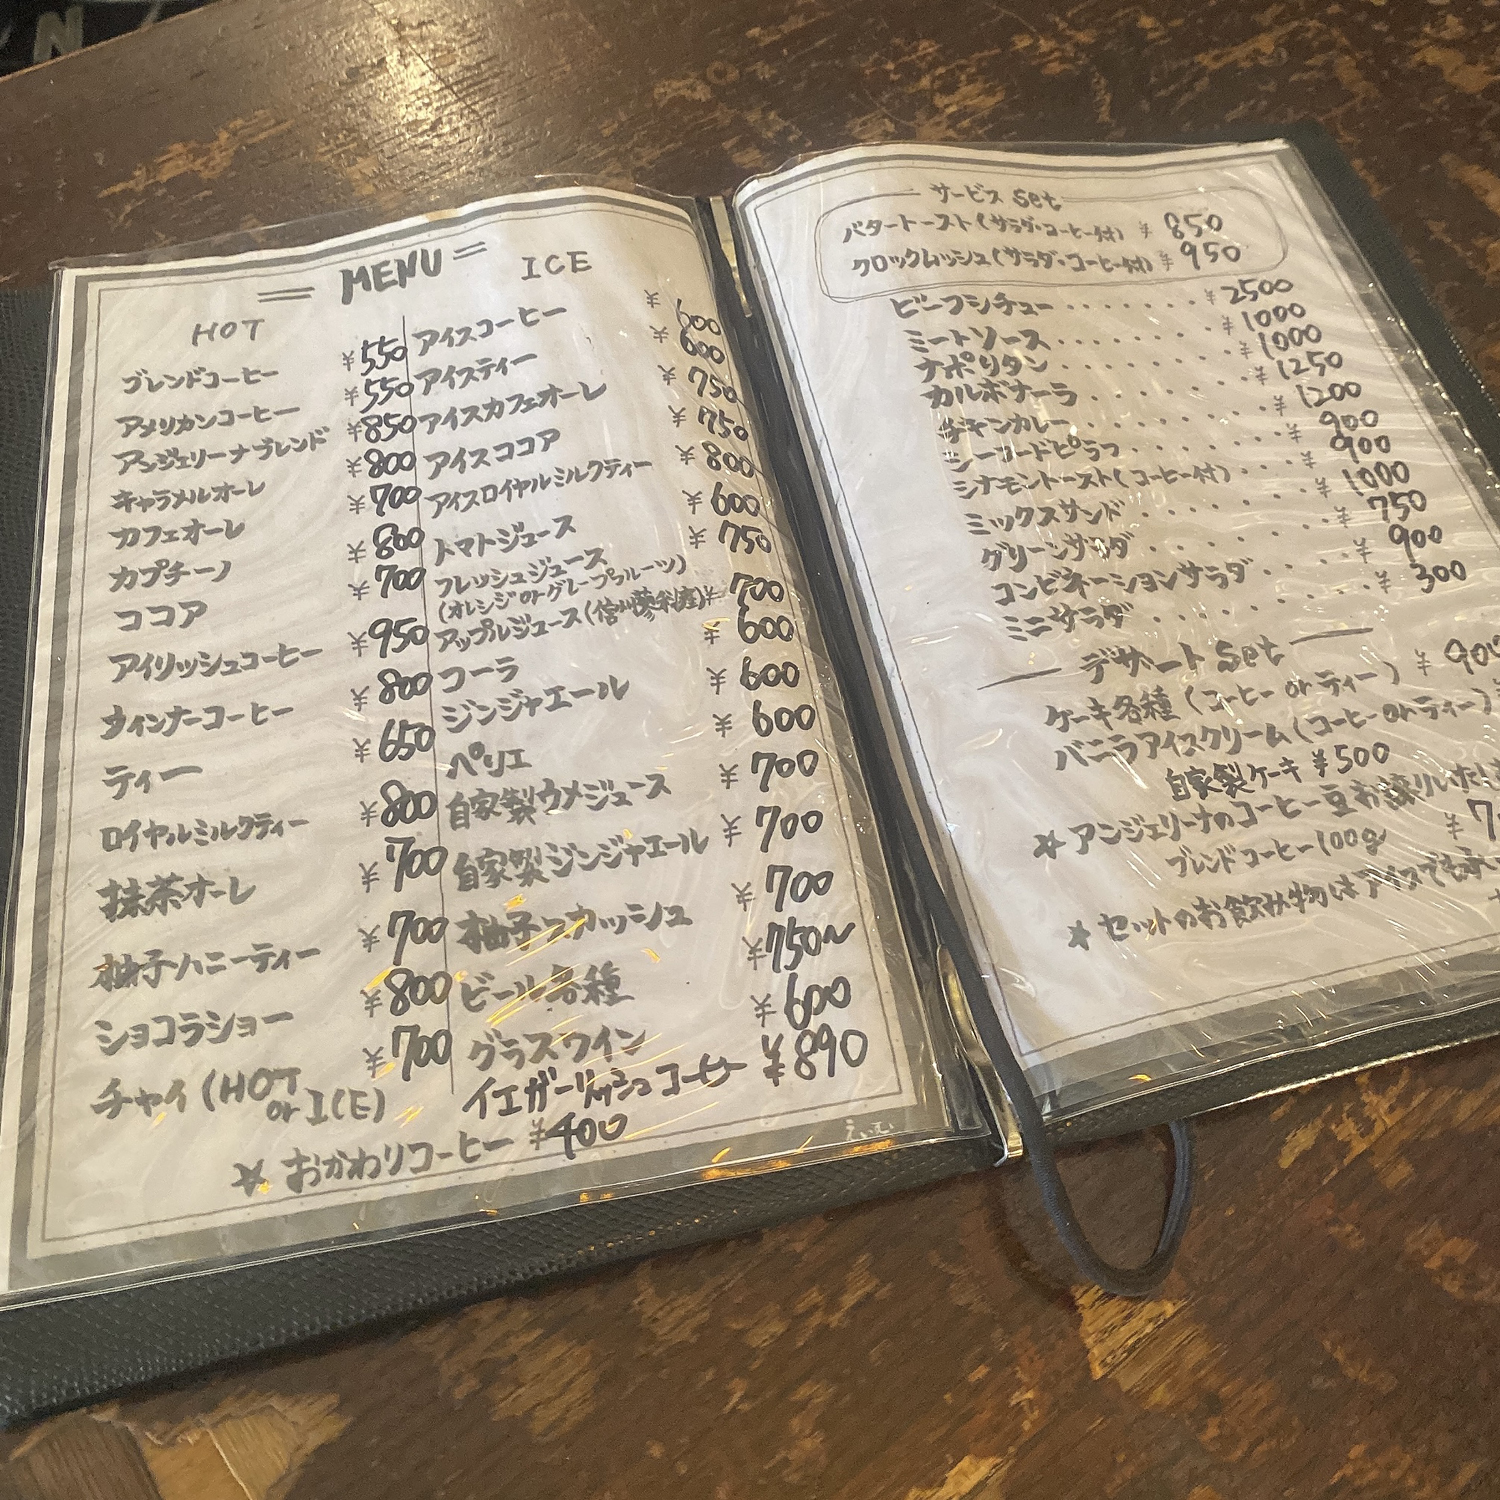 = MENU =
HOT
ブレンドコーヒー ¥550
アメリカンコーヒー ¥550
アンジェリーナブレンド ¥850
キャラメルオーレ ¥800
カフェオーレ ¥700
カプチーノ ¥800
ココア ¥700
アイリッシュコーヒー ¥950
ウィンナーコーヒー ¥800
ティー ¥650
ロイヤルミルクティー ¥800
抹茶オーレ ¥700
柚子ハニーティー ¥700
ショコラショー ¥800
チャイ(HOT ¥700
or ICE)
ICE
アイスコーヒー ¥600
アイスティー ¥600
アイスカフェオーレ ¥750
アイスココア ¥750
アイスロイヤルミルクティー ¥800
トマトジュース ¥600
フレッシュジュース ¥750
(オレンジorグレープフルーツ)
アップルジュース(信州 ¥700
コーラ ¥600
ジンジャエール ¥600
ペリエ ¥600
自家製ウメジュース ¥700
自家製ジンジャエール ¥700
柚子スカッシュ ¥700
ビール各種 ¥750〜
グラスワイン ¥600
イエガーリッシュコーヒー ¥890
☆ おかわりコーヒー ¥400
えいむ
サービス Set
バタートースト(サラダ・コーヒー付) ¥850
クロックムッシュ(サラダ・コーヒー付) ¥950
ビーフシチュー ・・・・・・・ ¥2500
ミートソース ・・・・・・・ ¥1000
ナポリタン ・・・・・・・ ¥1000
カルボナーラ ・・・・・・・ ¥1250
チキンカレー ・・・・・・・ ¥1200
シーフードピラフ ・・・・・・・ ¥900
シナモントースト(コーヒー付) ・・・ 900
ミックスサンド ・・・・・・ ¥1000
グリーンサラダ ・・・・・・ ¥750
コンビネーションサラダ ・・・ ¥900
ミニサラダ ・・・・・・ ¥300
デザート Set
ケーキ各種(コーヒー or ティー) ¥900
バニラアイスクリーム(コーヒー or ティー)
自家製ケーキ ¥500
☆ アンジェリーナのコーヒー豆お譲りいたし
ブレンドコーヒー100g ¥7
☆ セットのお飲み物はアイスでも